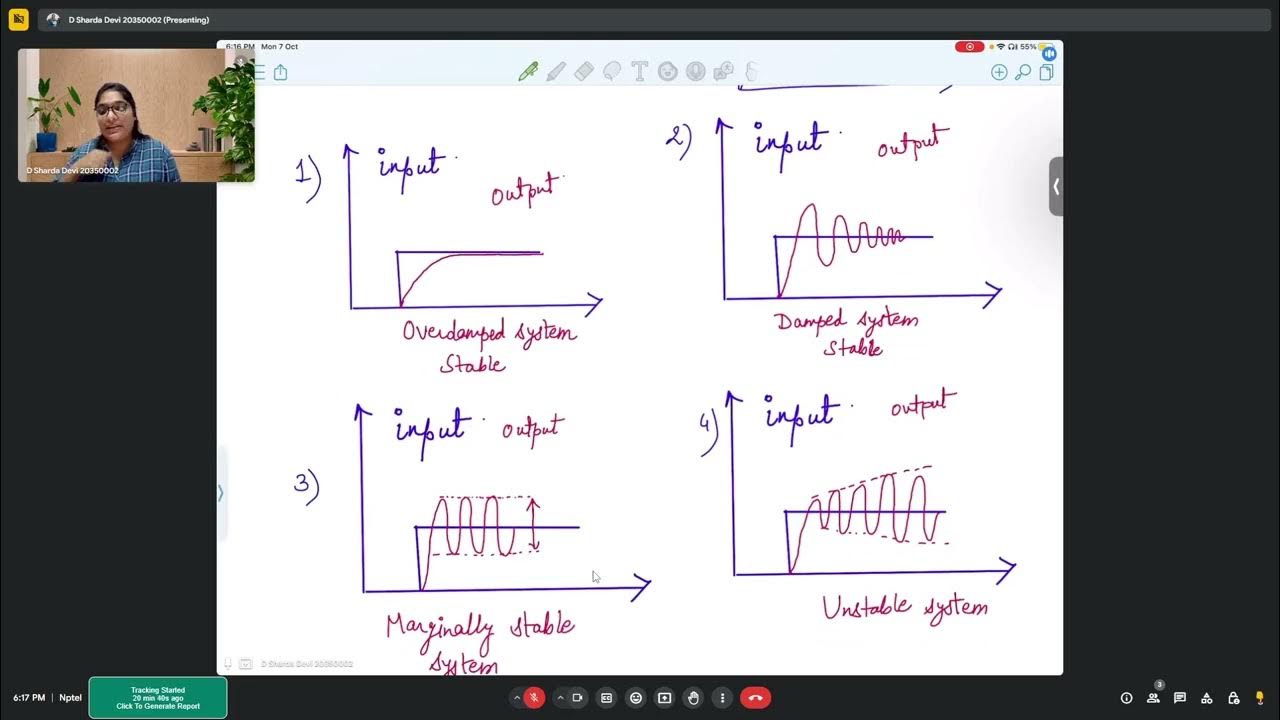 D Sharda Devi 20350002 (Presenting)
6:16 PM Mon 7 Oct
55%
D Sharda Devi 20350002
1)
input
output
Overdamped system
Stable
2)
input
output
Damped system
Stable
3)
input
output
Marginally stable
system
4)
input
output
Unstable system
D Sharda Devi 20350002
6:17 PM | Nptel
Tracking Started
20 min 40s ago
Click To Generate Report
3